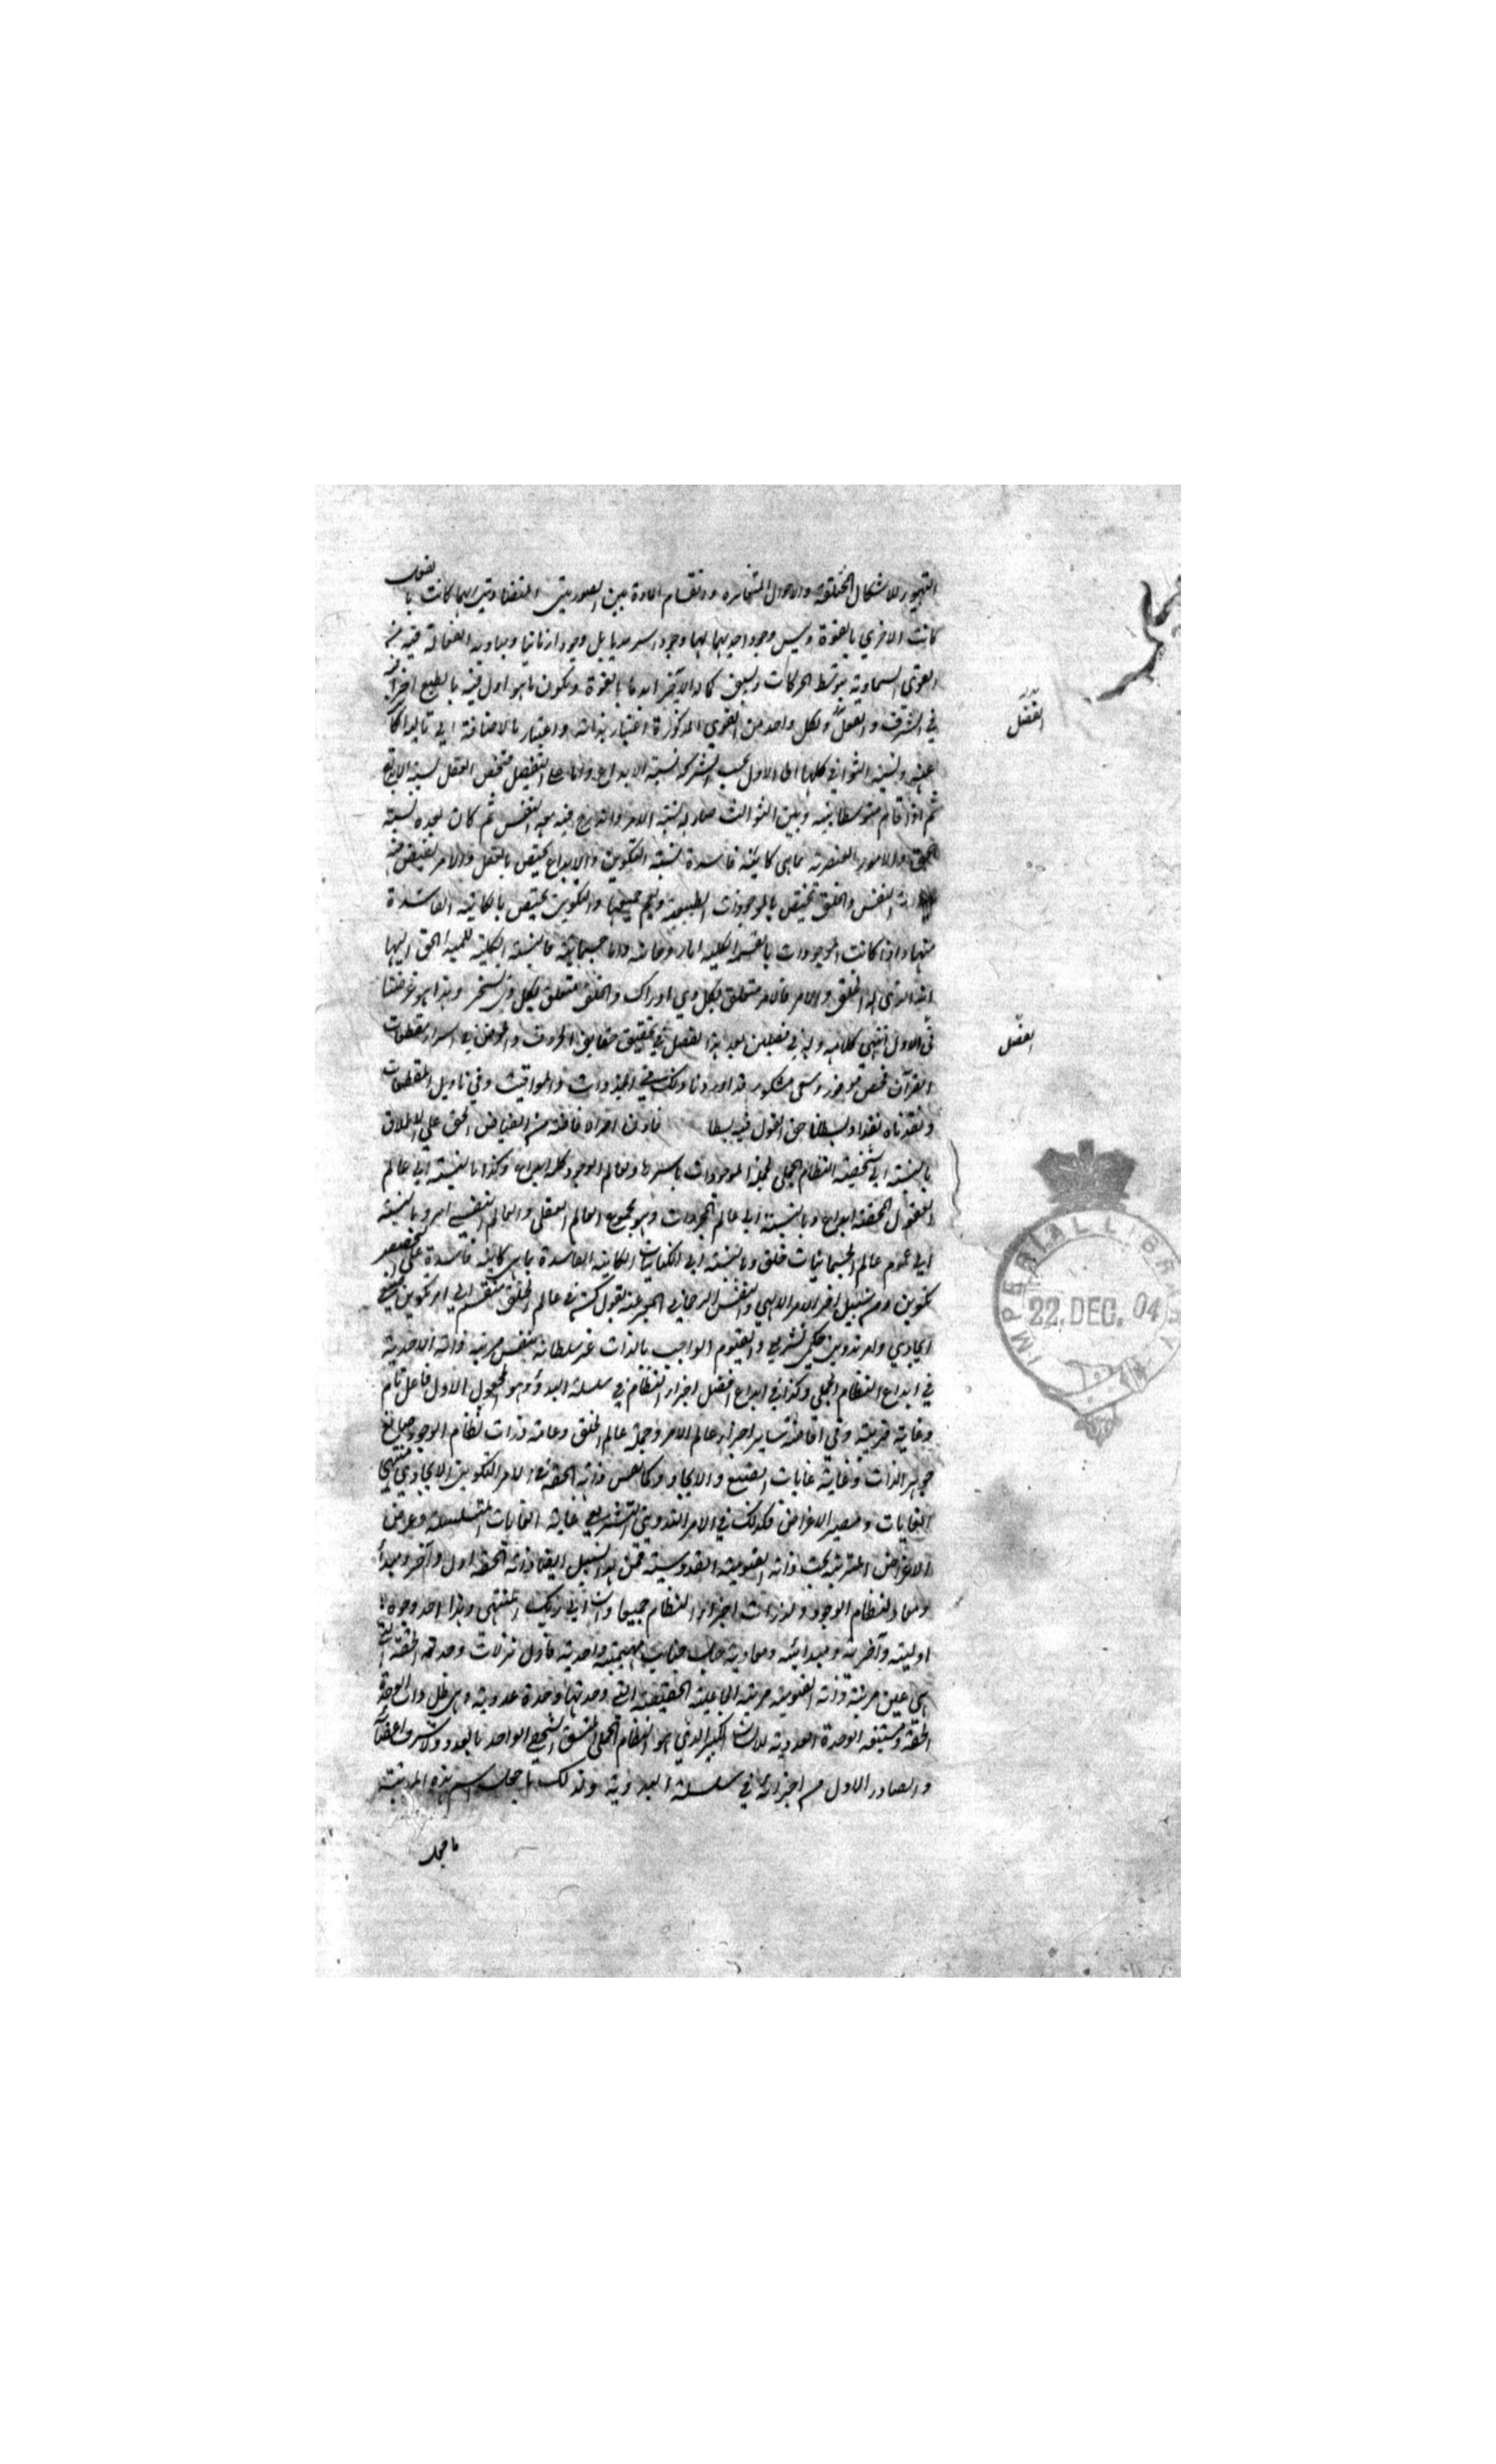 التهيؤ للاشكال المختلفة والاحوال المتغايرة وانقسام المادة بين الصورتين المتضادتين ايهما كانت بالفعل
كانت الاخرى بالقوة وليس وجود احديهما لهما وجودا سرمديا بل وجودا زمانيا ومباديه الفعالة فيه من
القوى السماوية بتوسط الحركات ويسبق كماله الآخر ابدا ما بالقوة ويكون ما هو اول فيه بالطبع آخرا
في الشرف والفضل ولكل واحد من القوى المذكورة اعتبار بذاته واعتبار بالاضافة الى تاليه الكائن
عنه ونسبة الثواني كلها الى الاول بحسب الشركة نسبة الابداع واما على التفصيل فتخص العقل نسبة الابداع
ثم اذا قام متوسطا بينه وبين الثوالث صار له نسبة الامر واندرج فيه معه النفس ثم كان بعده نسبة
الخلق والامور العنصرية بما هي كاينة فاسدة نسبة التكوين والابداع يختص بالعقل والامر يفيض منه
الى النفس والخلق يختص بالموجودات الطبيعية ويعم جميعها والتكوين يختص بالكاينة الفاسدة
منها واذا كانت الموجودات بالقسمة الكلية اما روحانية واما جسمانية فالنسبة الكلية للمبدأ الحق اليها
انه الذي له الخلق والامر فالامر متعلق بكل ذي ادراك والخلق متعلق بكل ذي تسخر وهذا هو غرضنا
في الاول انتهى كلامه وله في فصلين بعد هذا الفصل في تحقيق حقايق الحروف والخوض في اسرار مقطعات
القرآن فحص موفور وسعى مشكور قد اوردنا ذلك في الجذوات والمواقيت وفي تاويل المقطعات
ونقدناه نقدا وبسطنا حق القول فيه بسطا فاذن امر الافاضة من الفياض الحق على الاطلاق
بالنسبة الى شخصية النظام الجملي لجملة الموجودات باسرها وعالم الوجود كله ابداع وكذا بالنسبة الى عالم
العقول المحضة ابداع وبالنسبة الى عالم المجردات وهو مجموع العالم العقلي والعالم النفسي امر وبالنسبة
الى عموم عالم الجسمانيات خلق وبالنسبة الى الكيانيات الكاينة الفاسدة بما هي كاينة فاسدة على التخصيص
تكوين ومن سبيل آخر الامر الالهي والنفس الرحماني المعبر عنه بقول كن في عالم الخلق منقسم الى امر تكويني
ايجادي وامر تدويني حكمي تشريعي والقيوم الواجب بالذات عز سلطانه بنفس مرتبة ذاته الاحدية
في ابداع النظام الجملي وكذا في ابداع افضل اجزاء النظام في سلسلة البدو وهو المجعول الاول فاعل تام
وغاية قريبة وفي افاضة ساير اجزاء عالم الامر وجملة عالم الخلق وعامة ذرات نظام الوجود صانع
جوهر الذات وغاية غايات الصنع والايجاد وكما نفس ذاته الحقة في الامر التكويني الايجادي منتهى
الغايات ومصير الاغراض فكذلك في الامر التدويني التشريعي غاية الغايات المتسلسلة وغرض
الاغراض المترتبة بحت ذاته القيومية القدوسية فمن هذا السبيل ايضا ذاته الحقة اول وآخر ومبدأ
ومعاد لنظام الوجود ولذرات اجزاء النظام جميعا وان الى ربك المنتهى وهذا احد وجوه
اوليته وآخريته ومبدائيته ومعاديته جل جناب قيوميته واحديته فاول تنزلات وحدته الحقة التي
هي عين مرتبة ذاته القيومية مرتبة الجاعلية الحقيقية التي وحدتها وحدة عددية وهي ظل ذات الوحدة
الحقة ومستتبعة الوحدة العددية للانسان الكبير الذي هو النظام الجملي المتسق الشخصي الواحد بالعدد ولاشرف اعضائه
والصادر الاول من اجزائه في سلسلة البدوية ولذلك ما جعل اسم هذه المرتبة
ما جعل
الفضل
الفصل
IMPERIAL LIBRARY
22.DEC.04